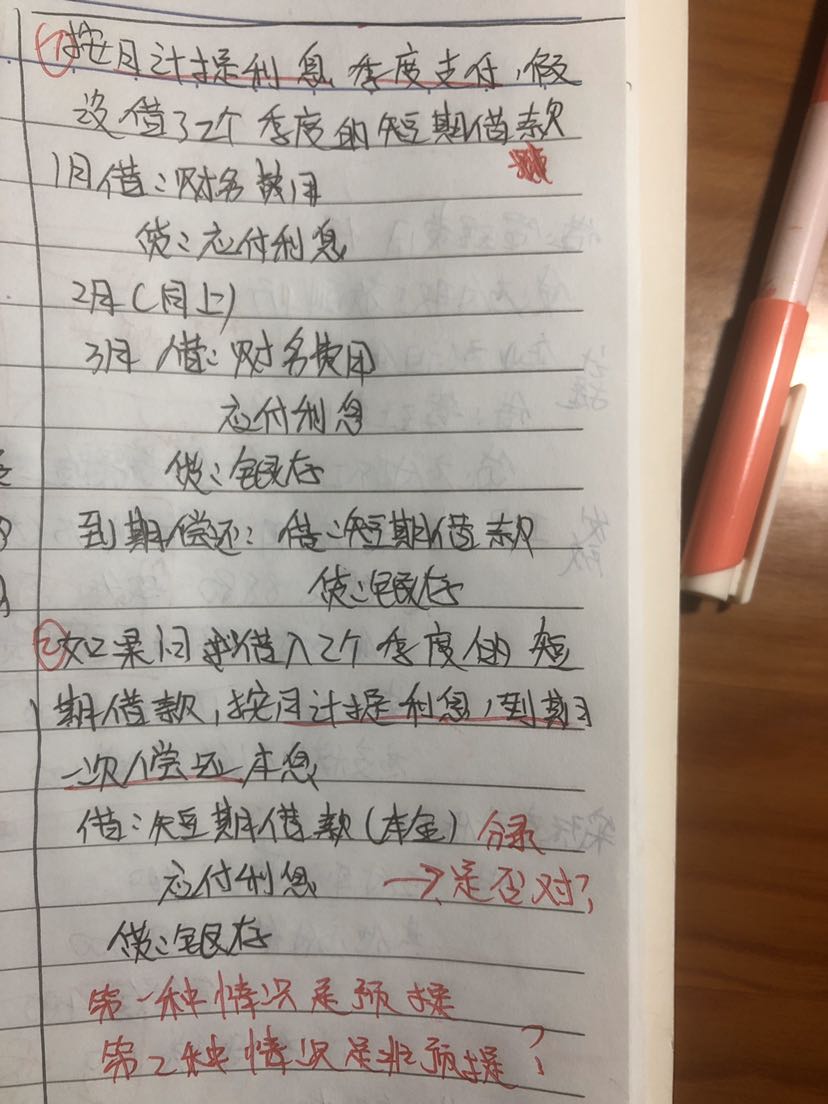 ①按月计提利息,季度支付,假
设借了2个季度的短期借款
1月借:财务费用
贷:应付利息
2月(同上)
3月 借:财务费用
应付利息
贷:银存
到期偿还:借:短期借款
贷:银存
②如果问我借入2个季度的短
期借款,按月计提利息,到期
一次偿还本息
借:短期借款(本金) 分录
应付利息 →是否对?
贷:银存
第一种情况是预提
第2种情况是非预提?